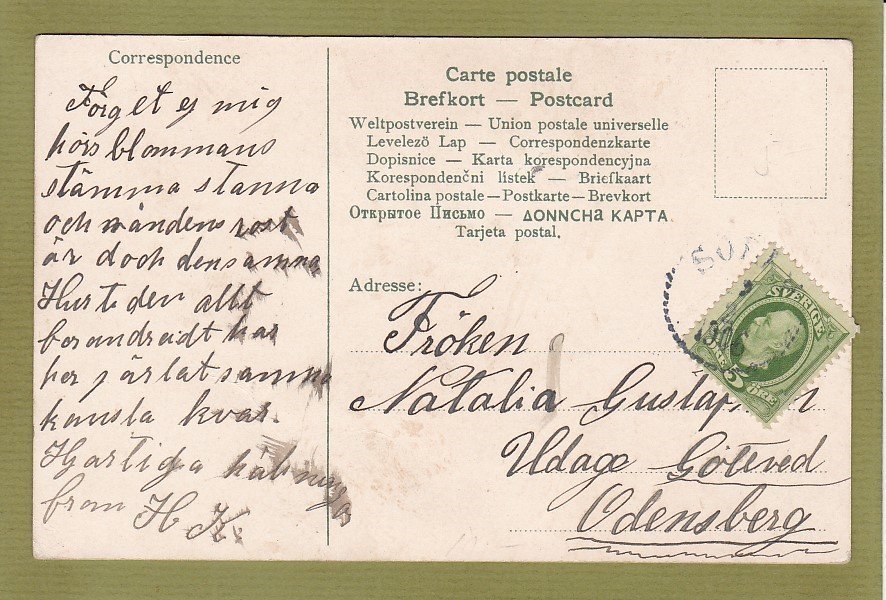 Correspondence
Förget ej mig
hörs blommans
stämma stanna
och vändens rost
är doch densamma
Hur tden allt
berandreidt har
her järlat samma
kansla kvar.
Hjartiga hälninger
from H K
Carte postale
Brefkort — Postcard
Weltpostverein — Union postale universelle
Levelező Lap — Correspondenzkarte
Dopisnice — Karta korespondencyjna
Korespondenčni listek — Briefkaart
Cartolina postale — Postkarte — Brevkort
Открытое Письмо — ΔΟΝΝCHа ΚΑΡΤΑ
Tarjeta postal.
Adresse:
SVERIGE
5 ÖRE
Fröken
Natalia
Udage Göteved
Odensberg